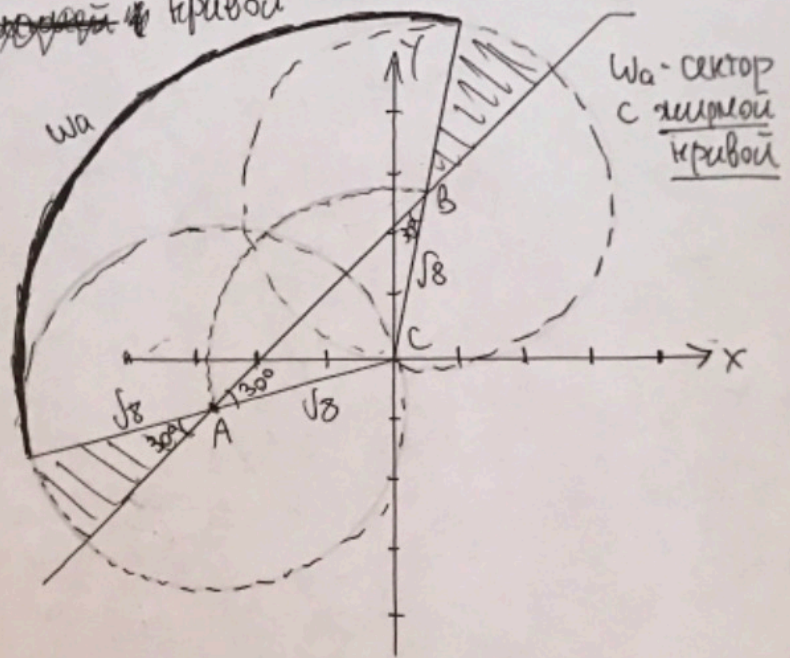 кривой
Wa
Y
Wa - сектор
с жирной
кривой
B
30°
√8
C
X
√8
30°
√8
30°
A